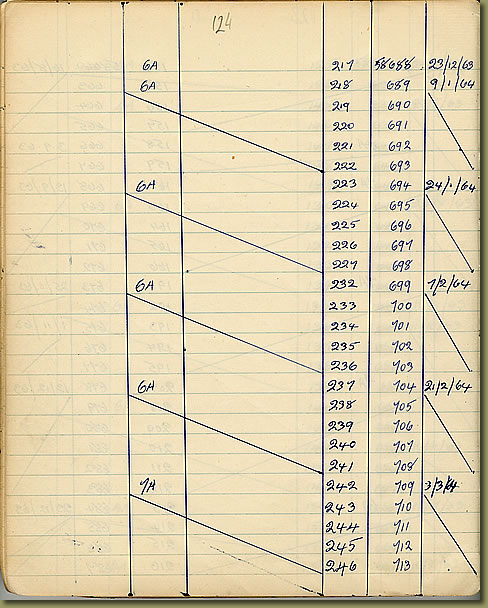 124
6A 217 58688 23/12/63
6A 218 689 9/1/64
219 690
220 691
221 692
222 693
6A 223 694 24/1/64
224 695
225 696
226 697
227 698
6A 232 699 7/2/64
233 700
234 701
235 702
236 703
6A 237 704 21/2/64
238 705
239 706
240 707
241 708
7A 242 709 3/3/64
243 710
244 711
245 712
246 713